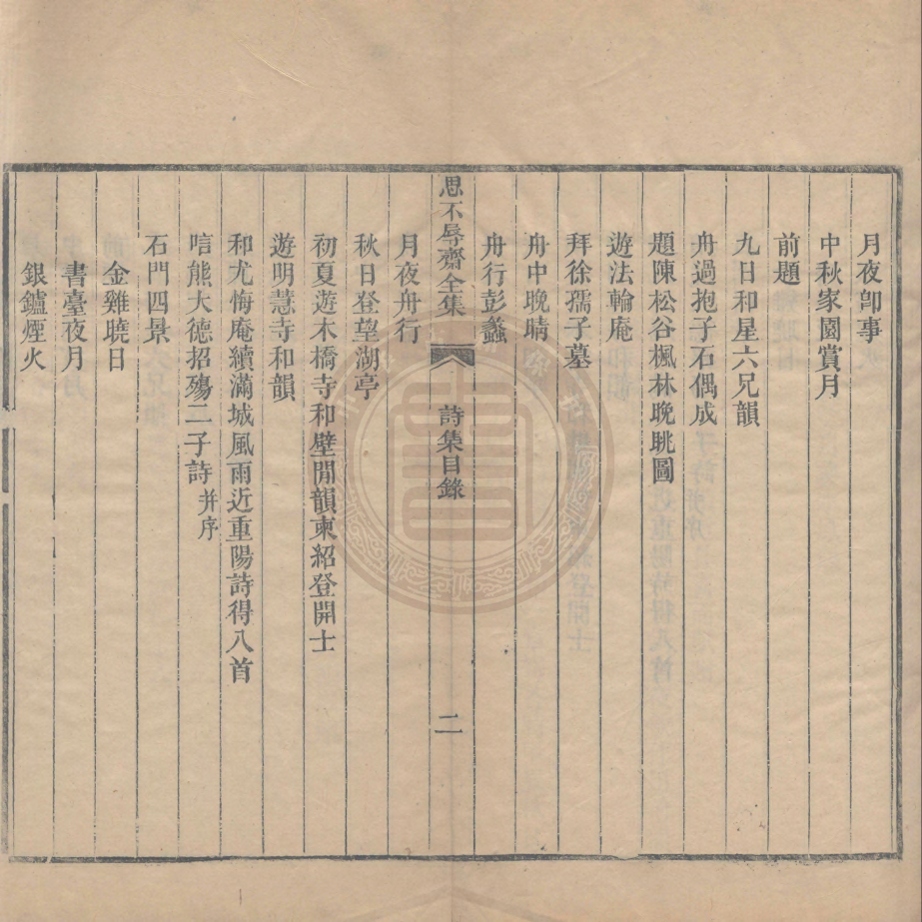 月夜卽事
中秋家園賞月
前題
九日和星六兄韻
舟過抱子石偶成
題陳松谷楓林晚眺圖
遊法輪庵
拜徐孺子墓
舟中晚晴
舟行彭蠡
思不辱齋全集 詩集目錄 二
月夜舟行
秋日登望湖亭
初夏遊木橋寺和壁閒韻柬紹登開士
遊明慧寺和韻
和尤悔庵續滿城風雨近重陽詩得八首
唁熊大德招殤二子詩并序
石門四景
金雞曉日
書臺夜月
銀鑪煙火